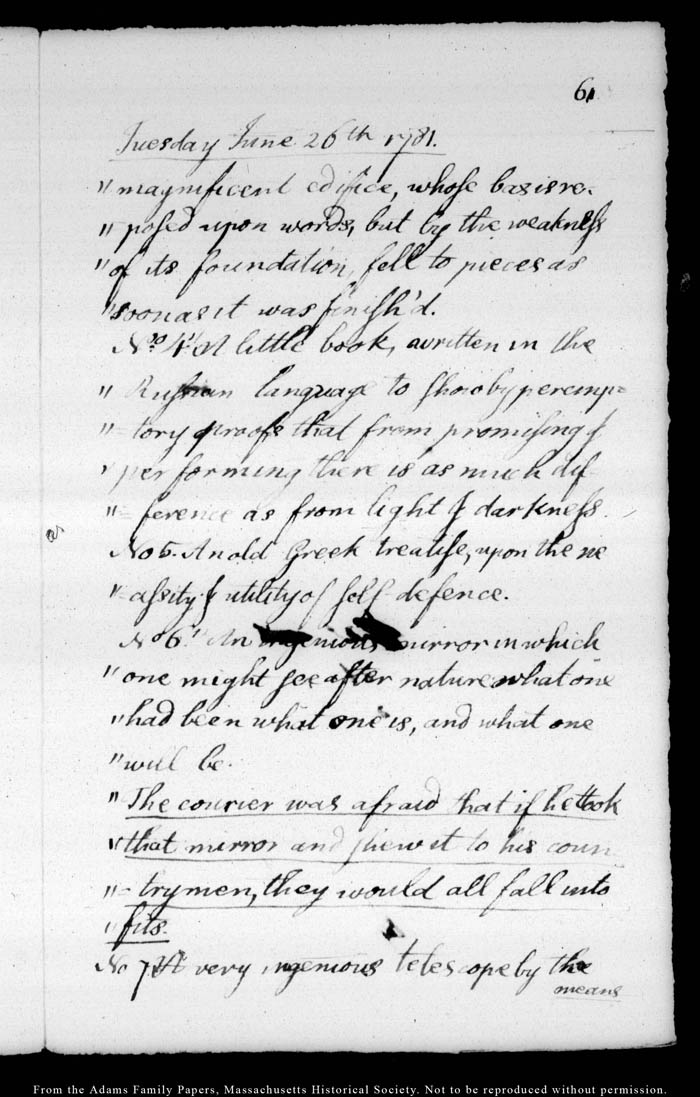 61
Tuesday June 26th 1781.
" magnificent edifice, whose basis re-
" posed upon words, but by the weakness
" of its foundation, fell to pieces as
" soon as it was finish'd.
No. 4 " A little book, written in the
" Russian language to show by peremp=
"= tory proofs that from promising &
" performing there is as much dif-
"= ference as from light & darkness.
No 5. An old Greek treatise, upon the ne
" cessity & utility of self defence.
No 6 " An ingenious mirror in which
" one might see after nature what one
" had been what one is, and what one
" will be.
" The courier was afraid that if he took
" that mirror and shew it to his coun
"= trymen, they would all fall into
" fits.
No 7 " A very ingenious telescope by the
means
From the Adams Family Papers, Massachusetts Historical Society. Not to be reproduced without permission.